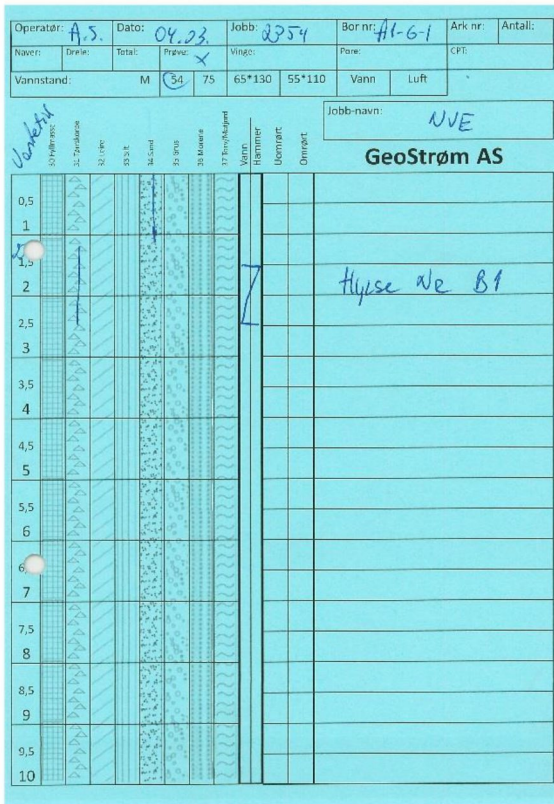 Operatør: A.S. Dato: 04.03. Jobb: 2354 Bor nr: A1-6-1 Ark nr: Antall:
Naver: Dreie: Total: Prøve: X Vinge: Pore: CPT:
Vannstand: M 54 75 65*130 55*110 Vann Luft
Jobb-navn: NVE
GeoStrøm AS
30 Fyllmasse
31 Tørrskorpe
32 Leire
33 Silt
34 Sand
35 Grus
36 Morene
37 Torv/Matjord
Vann
Hammer
Uomrørt
Omrørt
0,5
1
1,5
2
Hylse Nr B1
2,5
3
3,5
4
4,5
5
5,5
6
6,
7
7,5
8
8,5
9
9,5
10